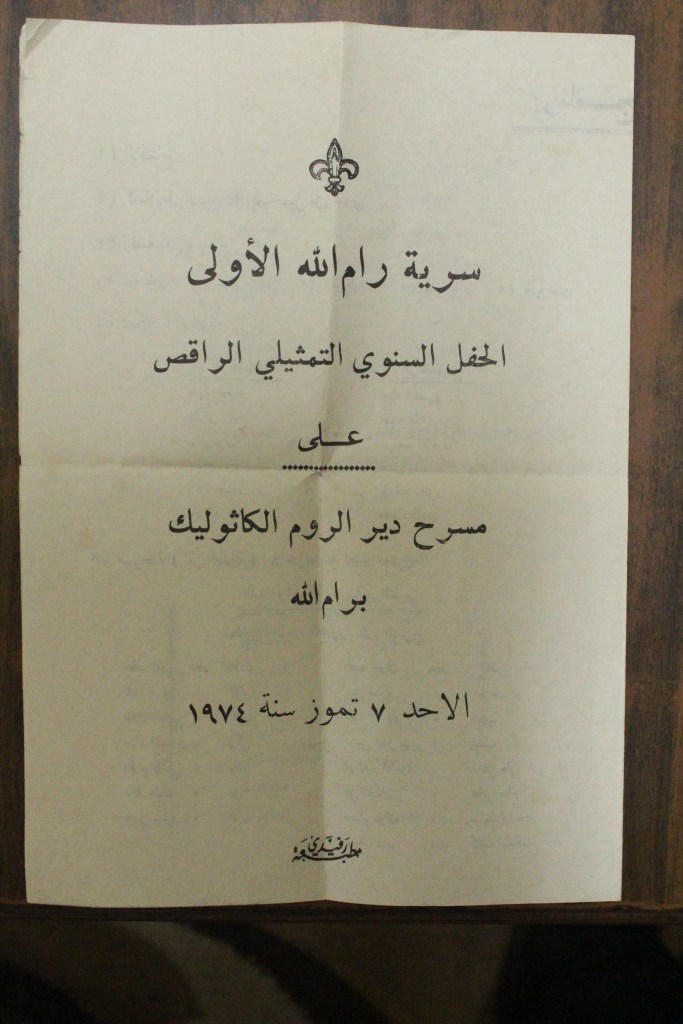 سرية رام الله الأولى
الحفل السنوي التمثيلي الراقص
على
مسرح دير الروم الكاثوليك
برام الله
الاحد ٧ تموز سنة ١٩٧٤
مطبعة رفيدي